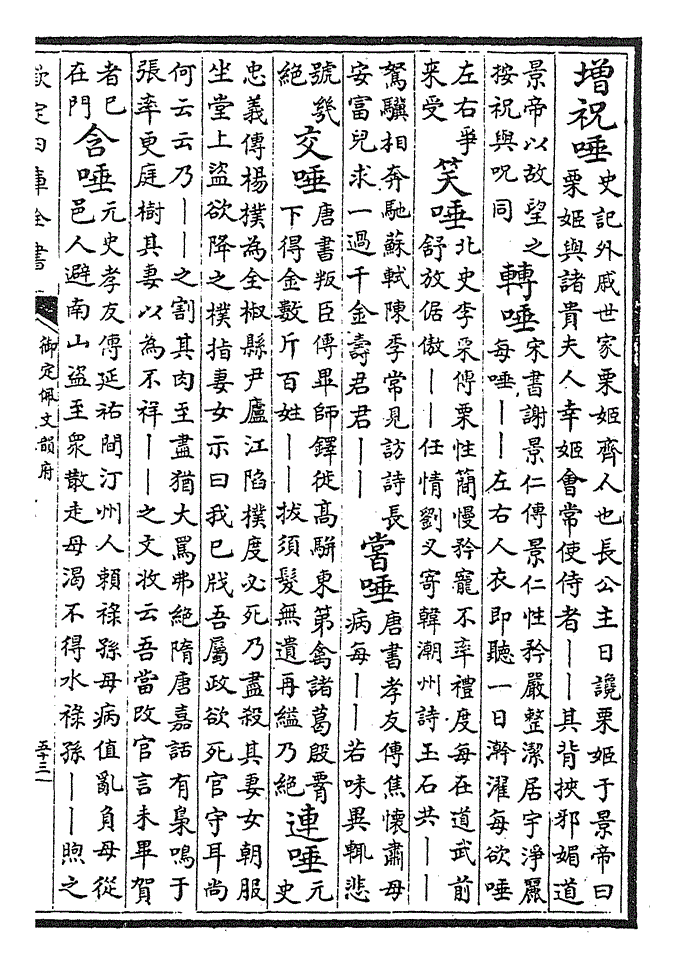 增祝唾
史記外戚世家栗姬齊人也長公主日讒栗姬于景帝曰
栗姬與諸貴夫人幸姬會常使侍者丨丨其背挾邪媚道
景帝以故望之
按祝與呪同
轉唾
宋書謝景仁傳景仁性矜嚴整潔居宇淨麗
每唾丨丨左右人衣即聽一日澣濯每欲唾
左右爭
來受
笑唾
北史李采傳栗性簡慢矜寵不率禮度每在道武前
舒放倨傲丨丨任情劉叉寄韓潮州詩玉石共丨丨
駑驥相奔馳蘇軾陳季常見訪詩長
安富兒求一過千金壽君君丨丨
嘗唾
唐書孝友傳焦懷肅母
病每丨丨若味異輒悲
號幾
絕
交唾
唐書叛臣傳畢師鐸徙高駢東第禽諸葛殷腰
下得金數斤百姓丨丨拔須髮無遺再縊乃絕
連唾
元
史
忠義傳楊樸為全椒縣尹廬江陷樸度必死乃盡殺其妻女朝服
坐堂上盜欲降之樸指妻女示曰我已戕吾屬政欲死官守耳尚
何云云乃丨丨之割其肉至盡猶大罵弗絕隋唐嘉話有梟鳴于
張率更庭樹其妻以為不祥丨丨之文收云吾當改官言未畢賀
者已
在門
含唾
元史孝友傳延祐間汀州人賴祿孫母病值亂負母從
邑人避南山盜至眾散走母渴不得水祿孫丨丨煦之
欽定四庫全書
御定佩文韻府
五十三